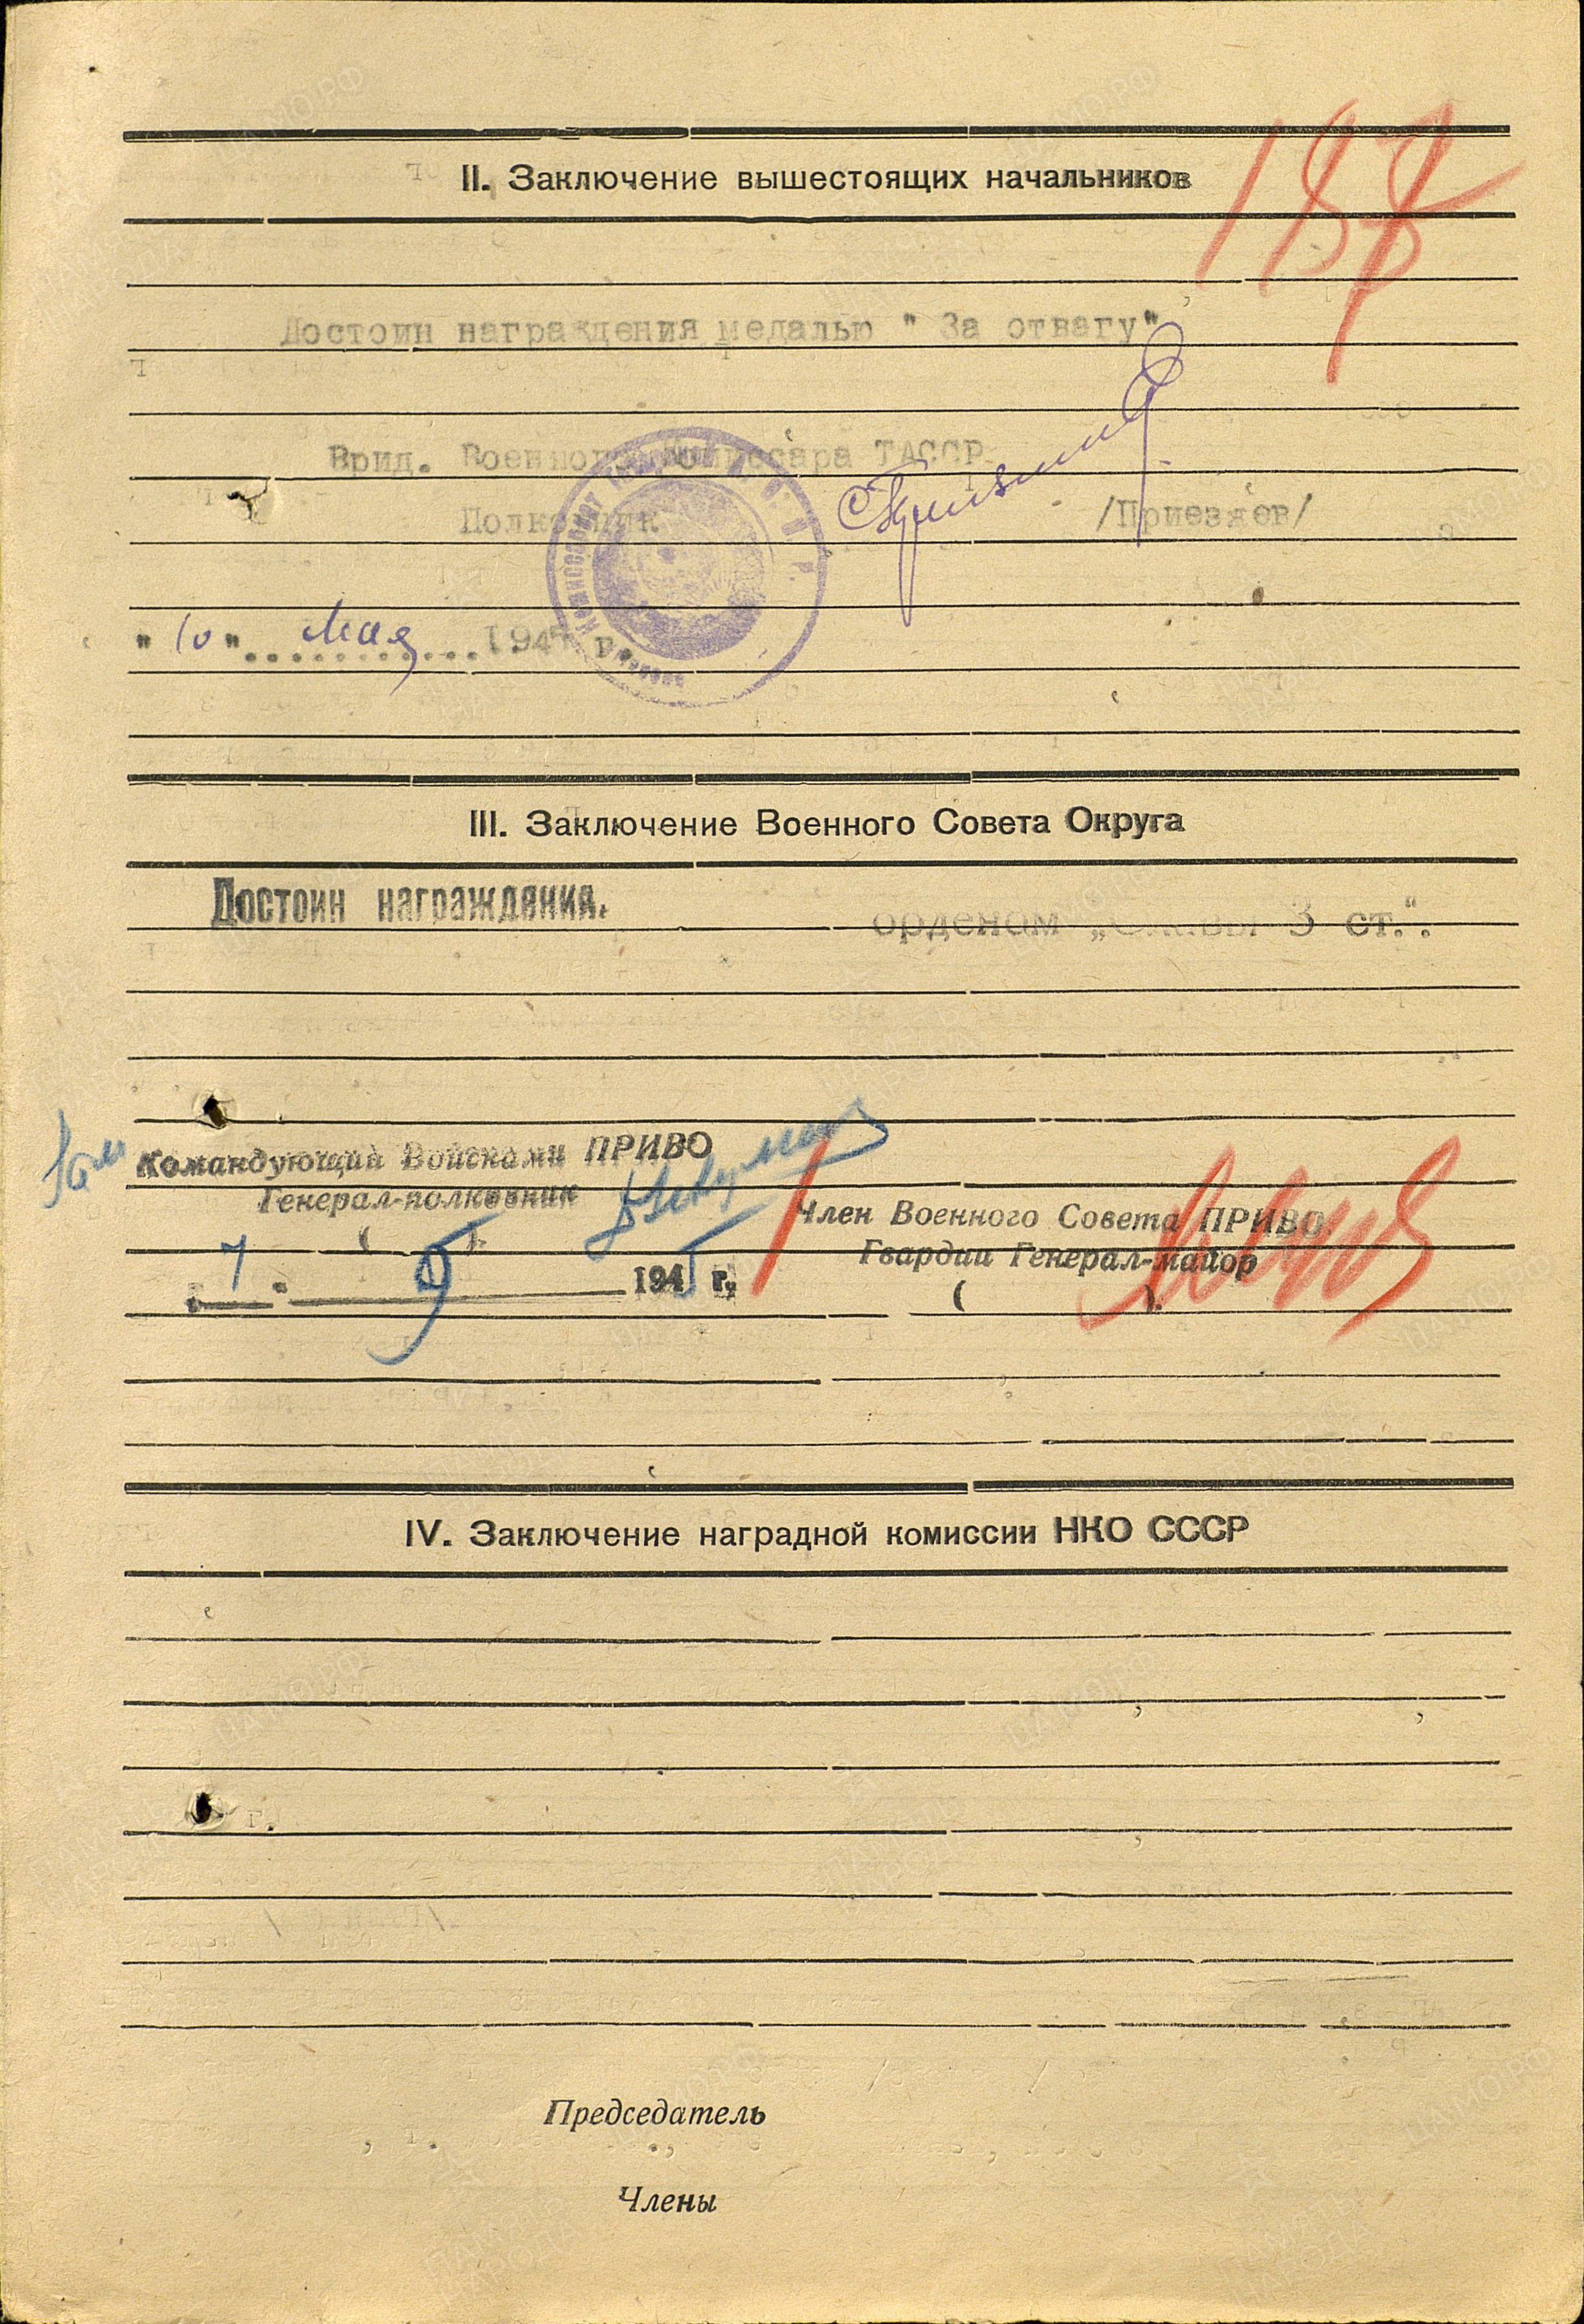 II. Заключение вышестоящих начальников
Достоин награждения медалью " За отвагу"
Врид. Военного Комиссара ТАССР
Полковник /Приезжев/
"10" мая 1945 г.
III. Заключение Военного Совета Округа
Достоин награждения. орденом „Славы 3 ст.".
Командующий Войсками ПРИВО
Генерал-полковник
Член Военного Совета ПРИВО.
Гвардии Генерал-майор
( ). ( ).
7 9 1945 г.
IV. Заключение наградной комиссии НКО СССР
Председатель
Члены